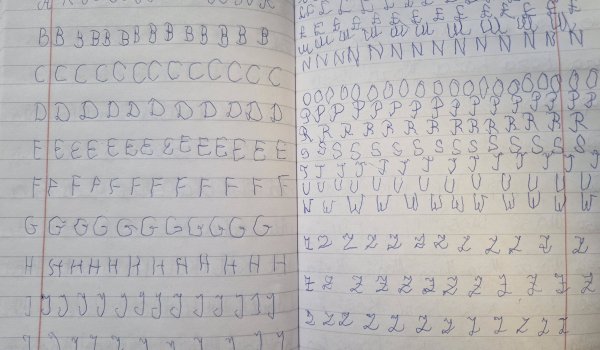 B B B B B B B B B B B B B B
C C C C C C C C C C C C C
D D D D D D D D D D D
E E E E E E E E E E E E E E
F F F F F F F F F F F F
G G G G G G G G G G G
H H H H H H H H H H H H
J J J J J J J J J J J J J J
N N N N N N N N N N N N N N N N
O O O O O O O O O O O O O O O O O O O O O O
P P P P P P P P P P P P P P P P
R R R R R R R R R R R R R R
S S S S S S S S S S S S S S
T T T T T T T T T T T T
U U U U U U U U U U U U U
W W W W W W W W W W W W W
Z Z Z Z Z Z Z Z Z Z Z Z
Z Z Z Z Z Z Z Z Z Z Z Z
Z Z Z Z Z Z Z Z Z Z Z Z